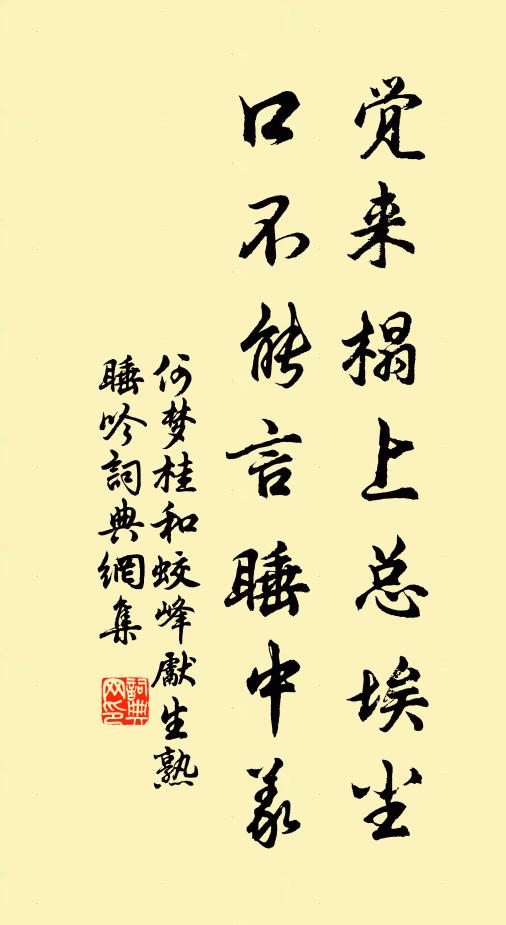 觉来榻上总埃尘
口不能言睡中義
何梦桂和蛟峰獻生熟
睡吟詞典網集
詞典
网印